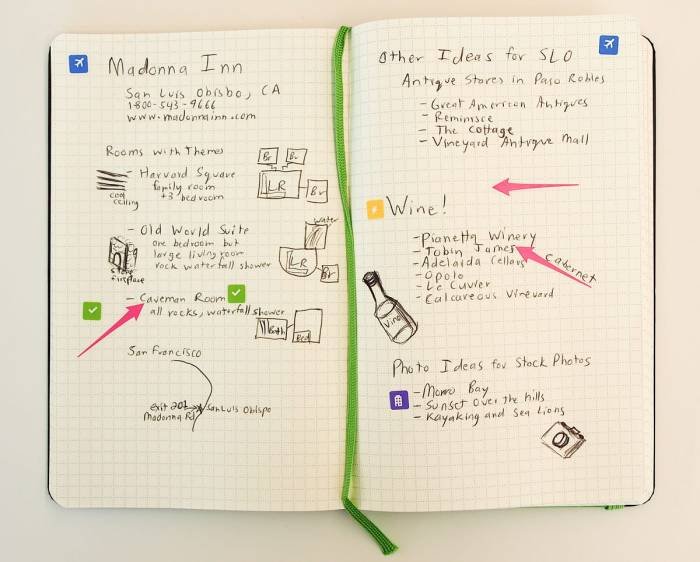 Madonna Inn
San Luis Obisbo, CA
1-800-543-9666
www.madonnainn.com
Rooms with Themes
- Harvard Square
family room
+3 bedroom
cool
ceiling
Br
Br
LR
Br
- Old World Suite
one bedroom but
large living room
rock waterfall shower
stone
fireplace
water
LR
Br
- Caveman Room
all rocks, waterfall shower
Bath
Bed
San Francisco
exit 201
Madonna Rd
San Luis Obispo
Other Ideas for SLO
Antique Stores in Paso Robles
- Great American Antiques
- Reminisce
- The Cottage
- Vineyard Antique Mall
Wine!
- Pianetta Winery
- Tobin James
- Adelaida Cellars
cabernet
- Opolo
- Le Cuvier
- Calcareous Vineyard
Vino
Photo Ideas for Stock Photos
- Morro Bay
- Sunset Over the hills
- Kayaking and Sea Lions